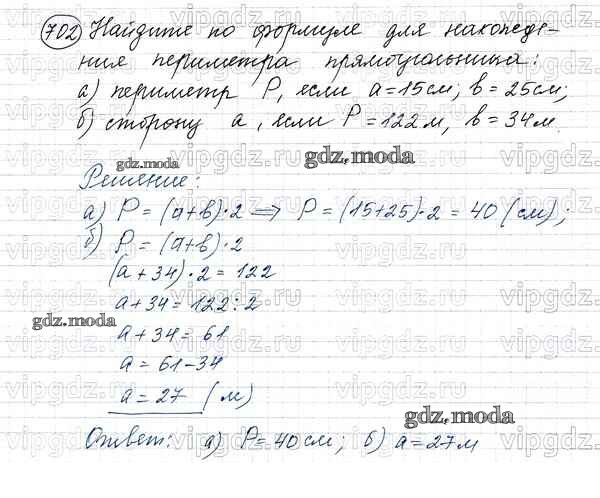 702 Найдите по формуле для нахожде-
ния периметра прямоугольника:
а) периметр P, если a = 15 см; b = 25 см;
б) сторону a, если P = 122 м, b = 34 м.
gdz.moda
gdz.moda
Решение:
а) P = (a+b)·2 ⟹ P = (15+25)·2 = 40 (см);
б) P = (a+b)·2
(a + 34)·2 = 122
a + 34 = 122 : 2
gdz.moda
a + 34 = 61
a = 61 - 34
a = 27 (м)
gdz.moda
Ответ: а) P = 40 см; б) a = 27 м
vipgdz.ru